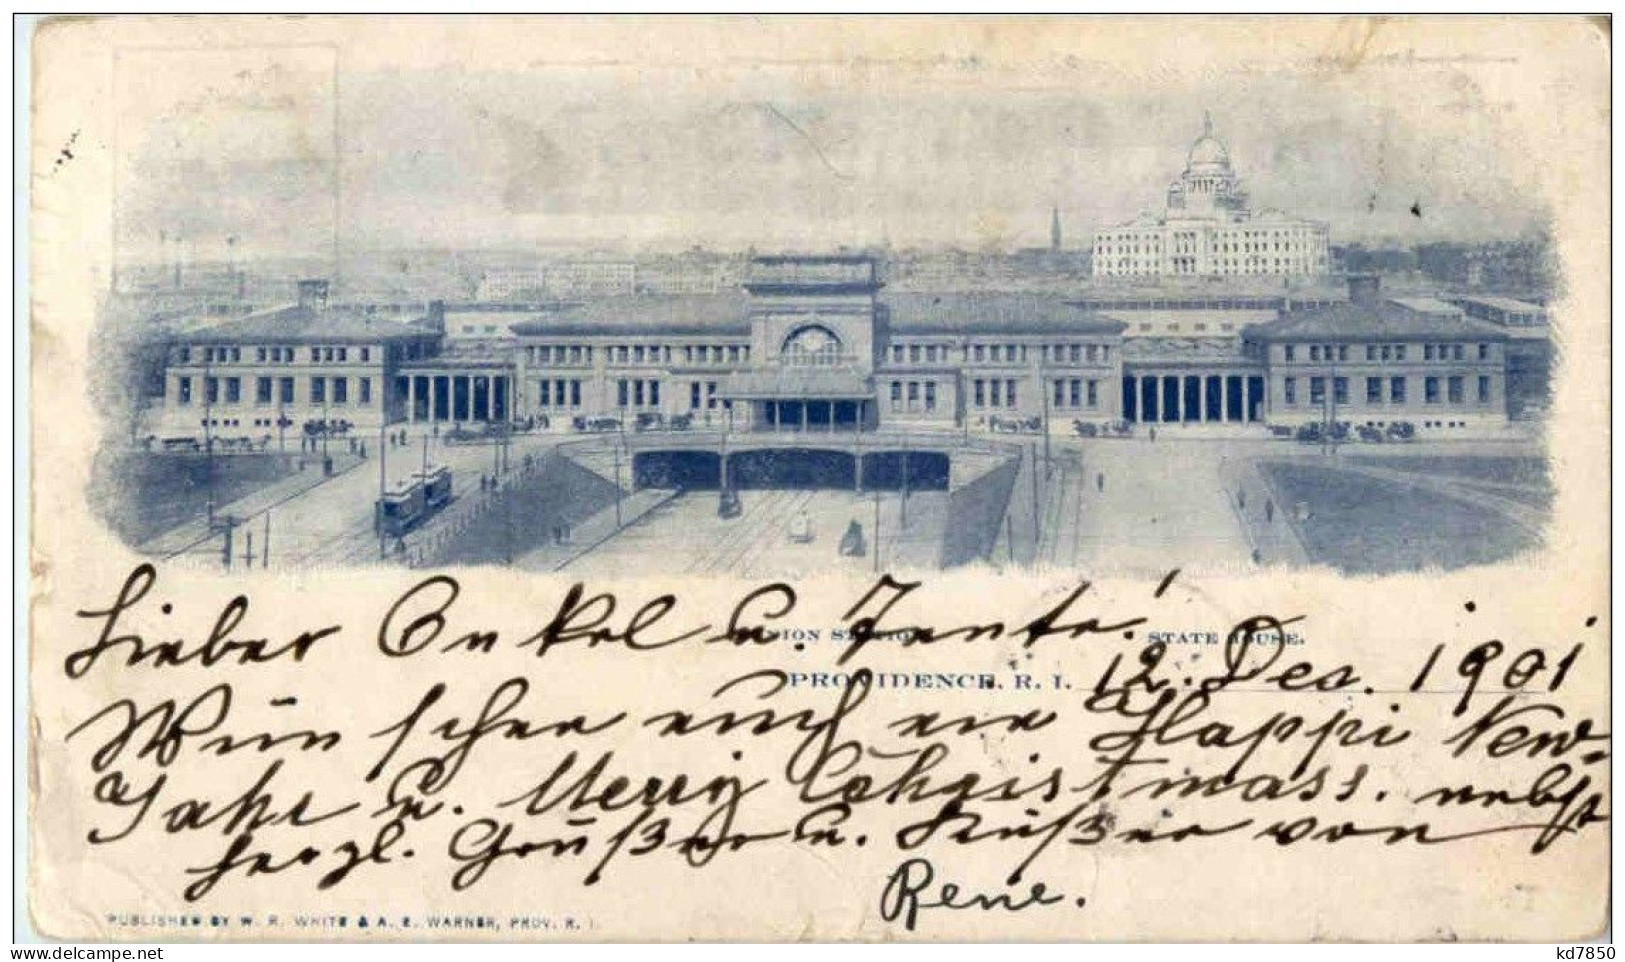 Lieber Onkel u. Tante!
UNION STATION. STATE HOUSE.
PROVIDENCE, R. I. 12. Des. 1901
Wünschen euch ein Happi New-
Jahr u. Merry Cchristmass. nebst
herzl. Grüßen u. Küßen von
Rene.
PUBLISHED BY W. R. WHITE & A. E. WARNER, PROV. R. I.
www.delcampe.net
kd7850